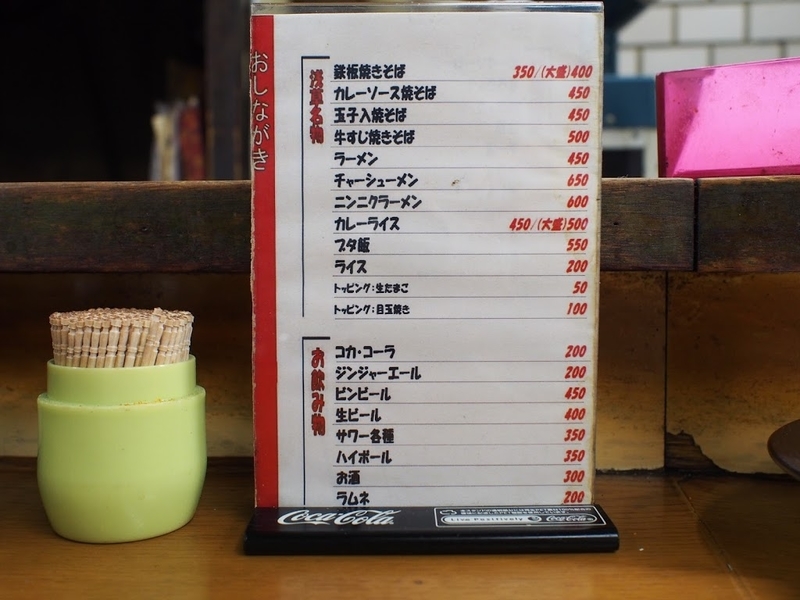 おしながき
浅草名物
鉄板焼きそば 350/(大盛)400
カレーソース焼そば 450
玉子入焼そば 450
牛すじ焼きそば 500
ラーメン 450
チャーシューメン 650
ニンニクラーメン 600
カレーライス 450/(大盛)500
ブタ飯 550
ライス 200
トッピング:生たまご 50
トッピング:目玉焼き 100
お飲み物
コカ・コーラ 200
ジンジャーエール 200
ビンビール 450
生ビール 400
サワー各種 350
ハイボール 350
お酒 300
ラムネ 200
Coca-Cola
Live Positively
Coca-Cola